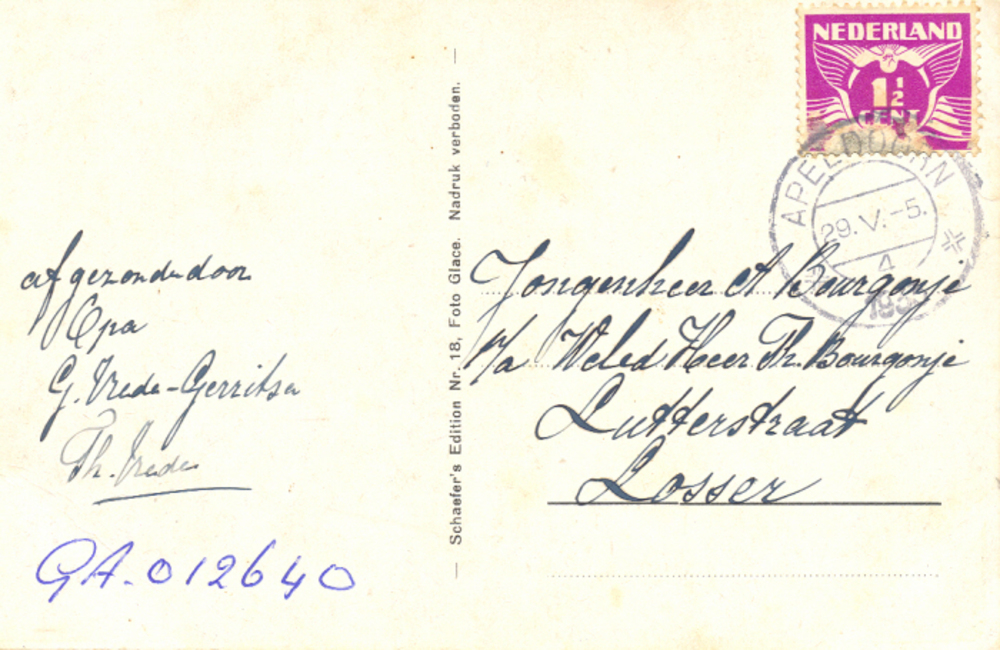 NEDERLAND
1½
CENT
APELDOORN
29.V.-5.
4
afgezonden door
Opa
G. Vrede-Gerritsen
Th. Vrede
GA.012640
Schaefer's Edition Nr. 18, Foto Glace. Nadruk verboden.
Jongenheer A Bourgonje
p/a Weled Heer Th. Bourgonje
Lutterstraat
Losser